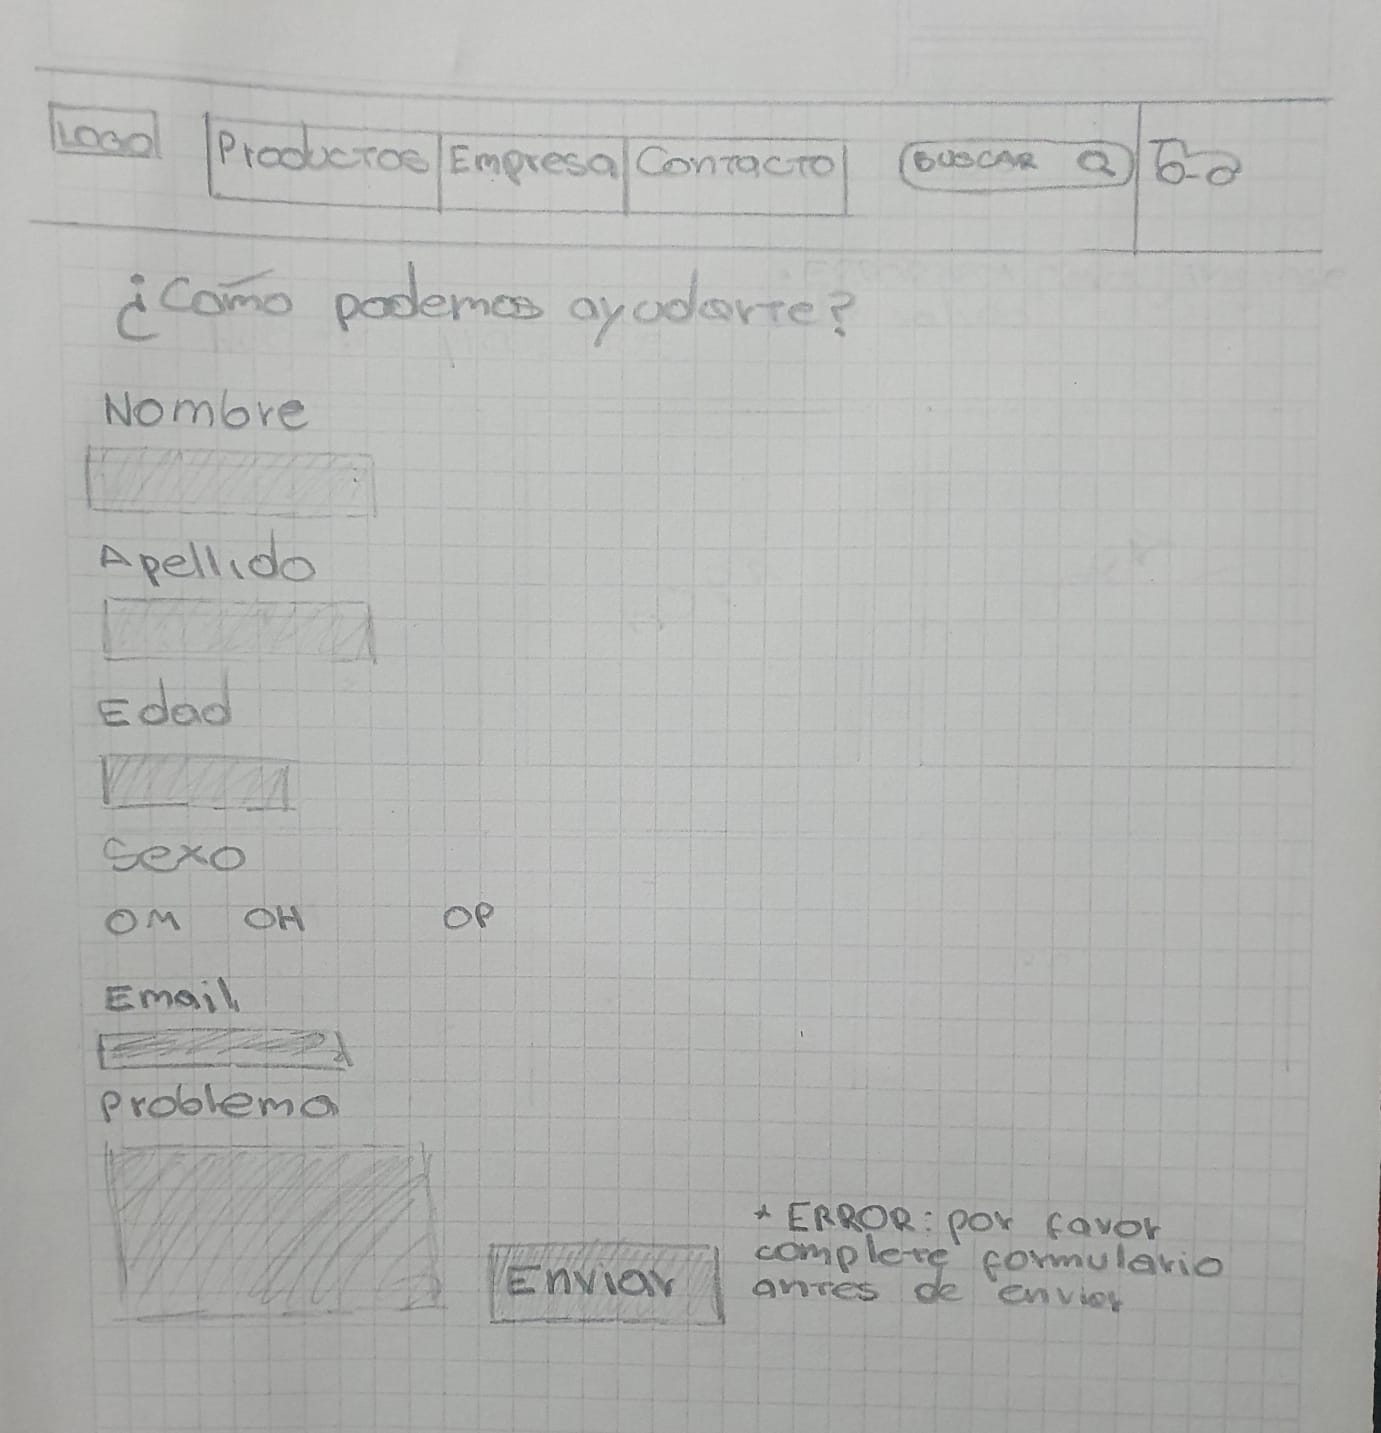 LOGO Productos Empresa Contacto BUSCAR
¿Como podemos ayudarte?
Nombre
Apellido
Edad
Sexo
OM OH OP
Email
Problema
* ERROR: por favor
complete formulario
antes de enviar
Enviar